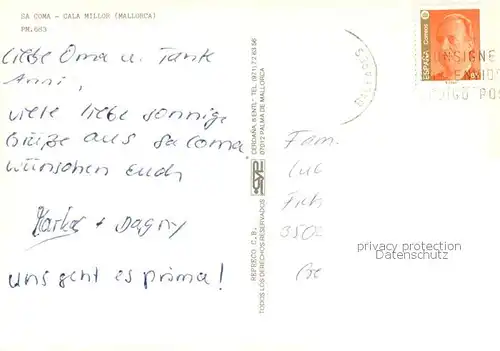 SA COMA - CALA MILLOR (MALLORCA)
PM.683
Liebe Oma u. Tante
Anni,
viele liebe sonnige
Grüße aus Sa Coma
wünschen Euch
Markus + Dagny
uns geht es prima!
REFRESCO C.B.
TODOS LOS DERECHOS RESERVADOS
CERDAÑA, 6 ENTL° TEL. (971) 72 63 56
07012 PALMA DE MALLORCA
BALEARES
ESPAÑA Correos
CONSIGNE
CODIGO POS
Fam.
3502
privacy protection
Datenschutz